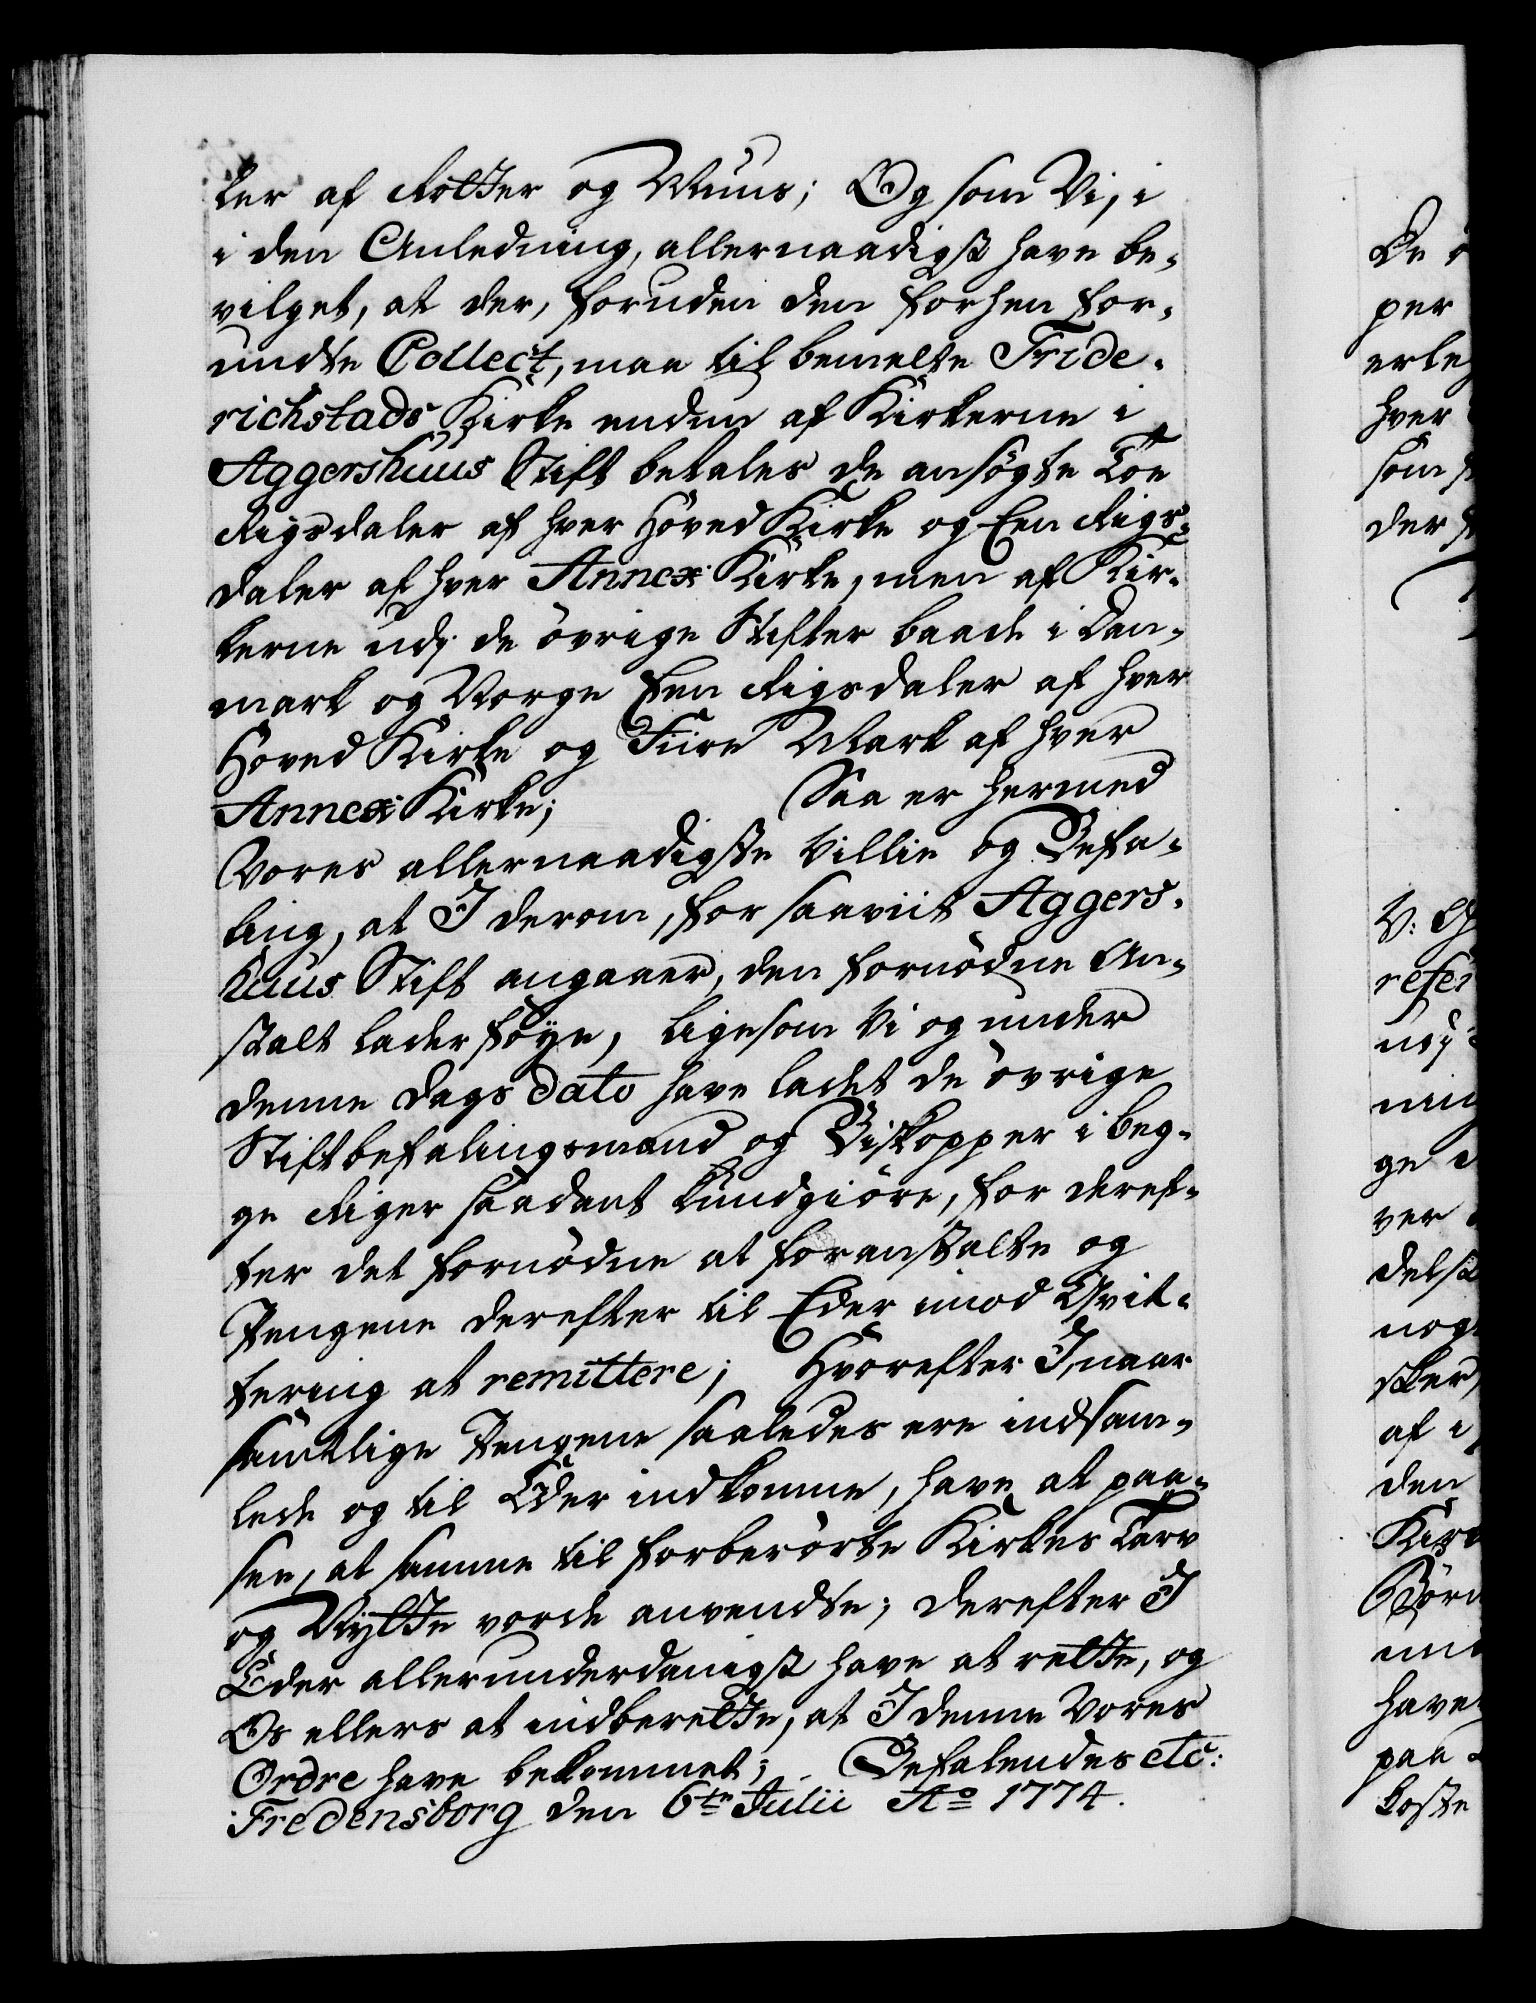 ker af Rotter og Muus; Og som Vi, i
i den Anledning, allernaadigst have be-
vilget, at der, foruden den forhen for-
undte Collect, maa til bemelte Fride-
richstads Kirke enden af Kirkerne i
Aggershuus Stift betales de ansøgte Toe
Rigsdaler af hver Hoved Kirke og Een Rigs-
daler af hver Annex Kirke, men af Kir-
kerne udj de øvrige Stifter baade i Dan-
mark og Norge Een Rigsdaler af hver
Hoved Kirke og Fiire Mark af hver
Annex Kirke; Saa er hermed
Vores allernaadigste Villie og Befa-
ling, at I derom, for saaviit Aggers-
huus Stift angaaer, den fornødne An-
stalt lader føye, ligesom Vi og under
denne Dags Dato have ladet de øvrige
Stiftbefalingsmænd og Biskopper i beg-
ge Riger saadant kundgiøre, for deref-
ter det fornødne at foranstalte og
Pengene derefter til Eder imod Qvit-
tering at remittere; Hvorefter I, naar
samtlige Pengene saaledes ere indsam-
lede og til Eder indkomne, have at paa-
see, at samme til forberørte Kirkes Tarv
og Nytte vorde anvendte; Derefter I
Eder allerunderdanigst have at rette, og
Os ellers at indberette, at I denne Vores
Ordre have bekommet; Befalendes etc:
Fredensborg den 6te Julii Ao 1774.
De
per
erleg
hver
som
der
V:
refer
udj
ge
ver
delst
af i
den
Kir
have
paa
koste